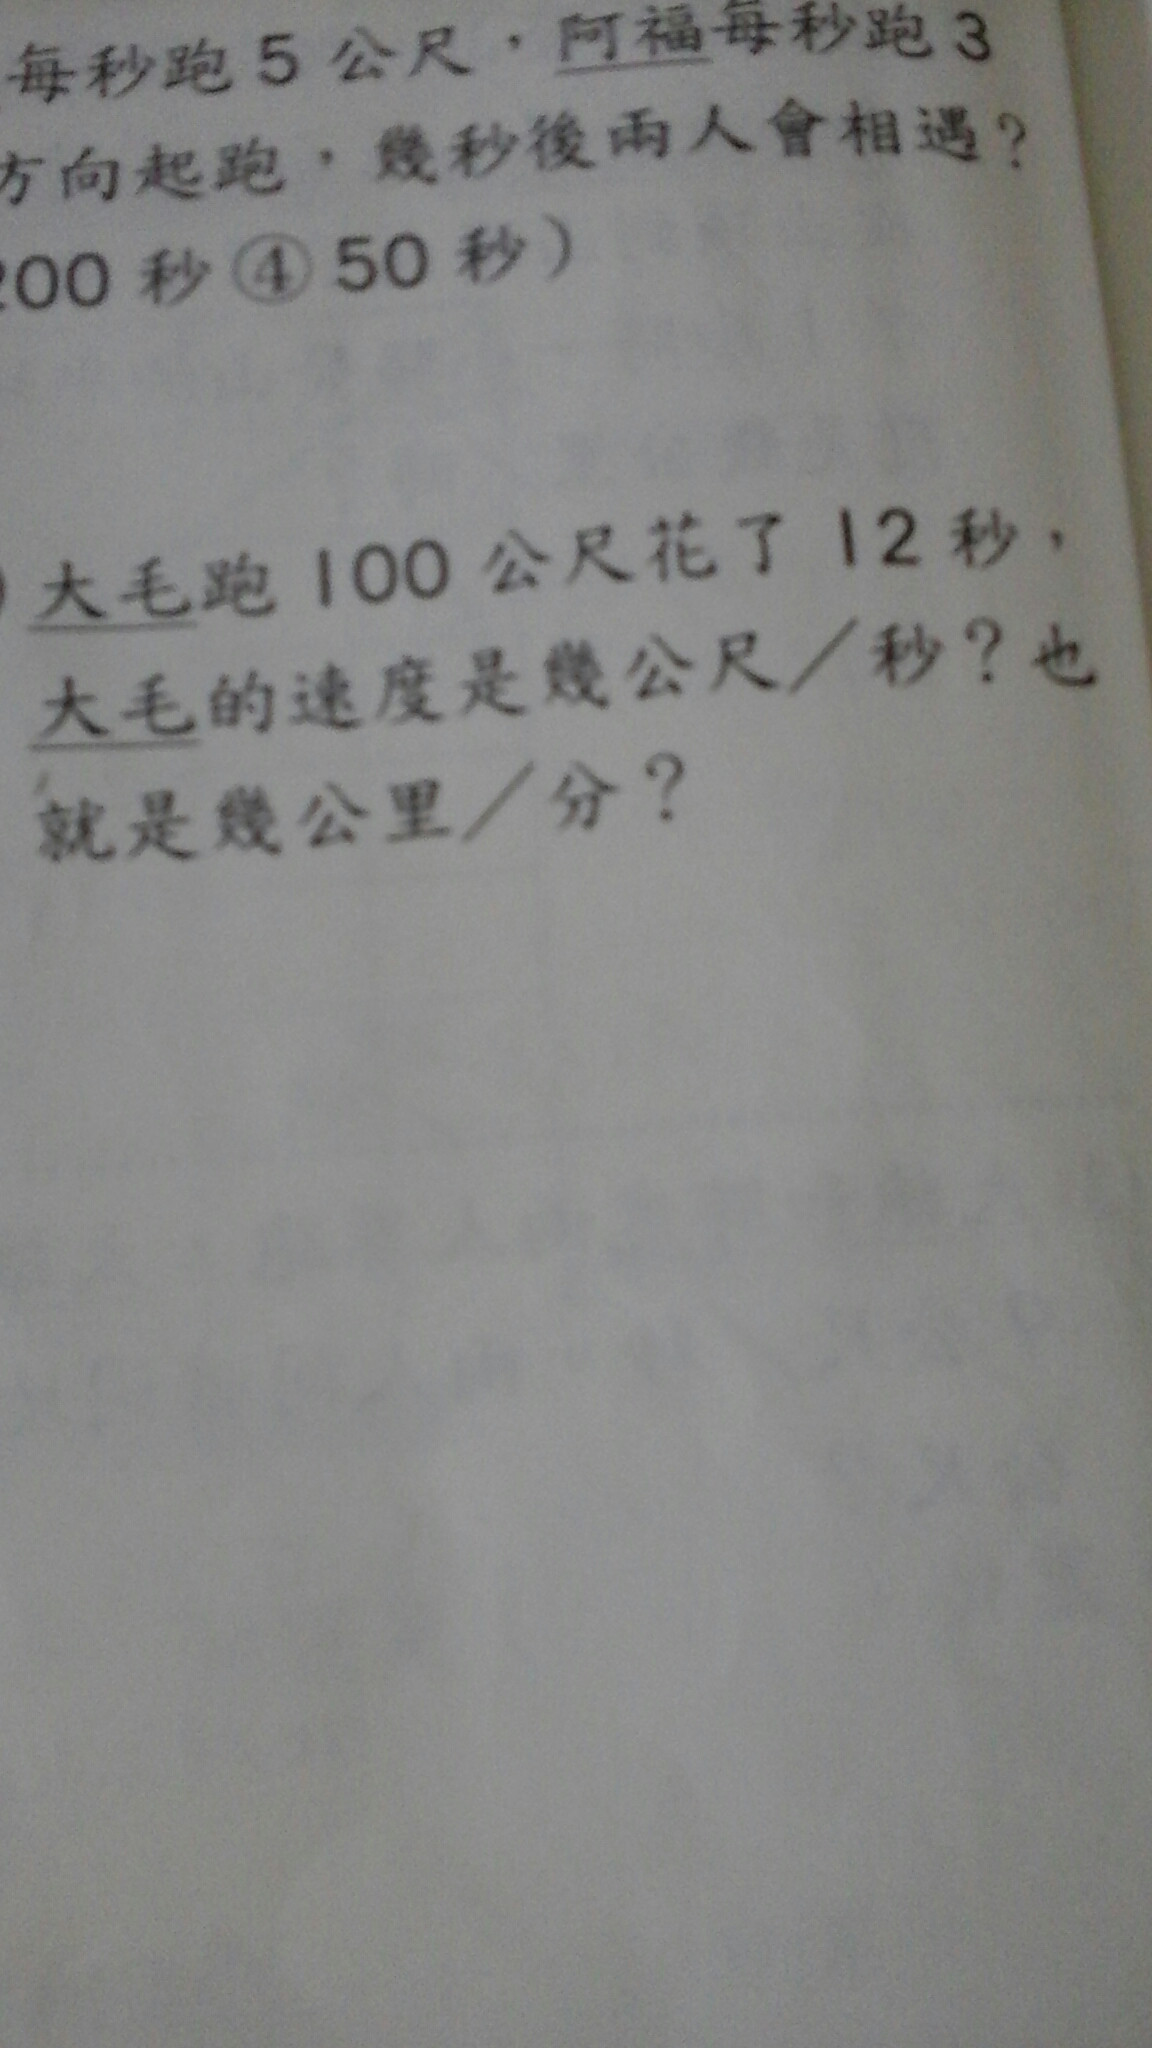 每秒跑 5 公尺,阿福每秒跑 3
方向起跑,幾秒後兩人會相遇?
200 秒 ④ 50 秒)
) 大毛跑 100 公尺花了 12 秒,
大毛的速度是幾公尺/秒?也
就是幾公里/分?